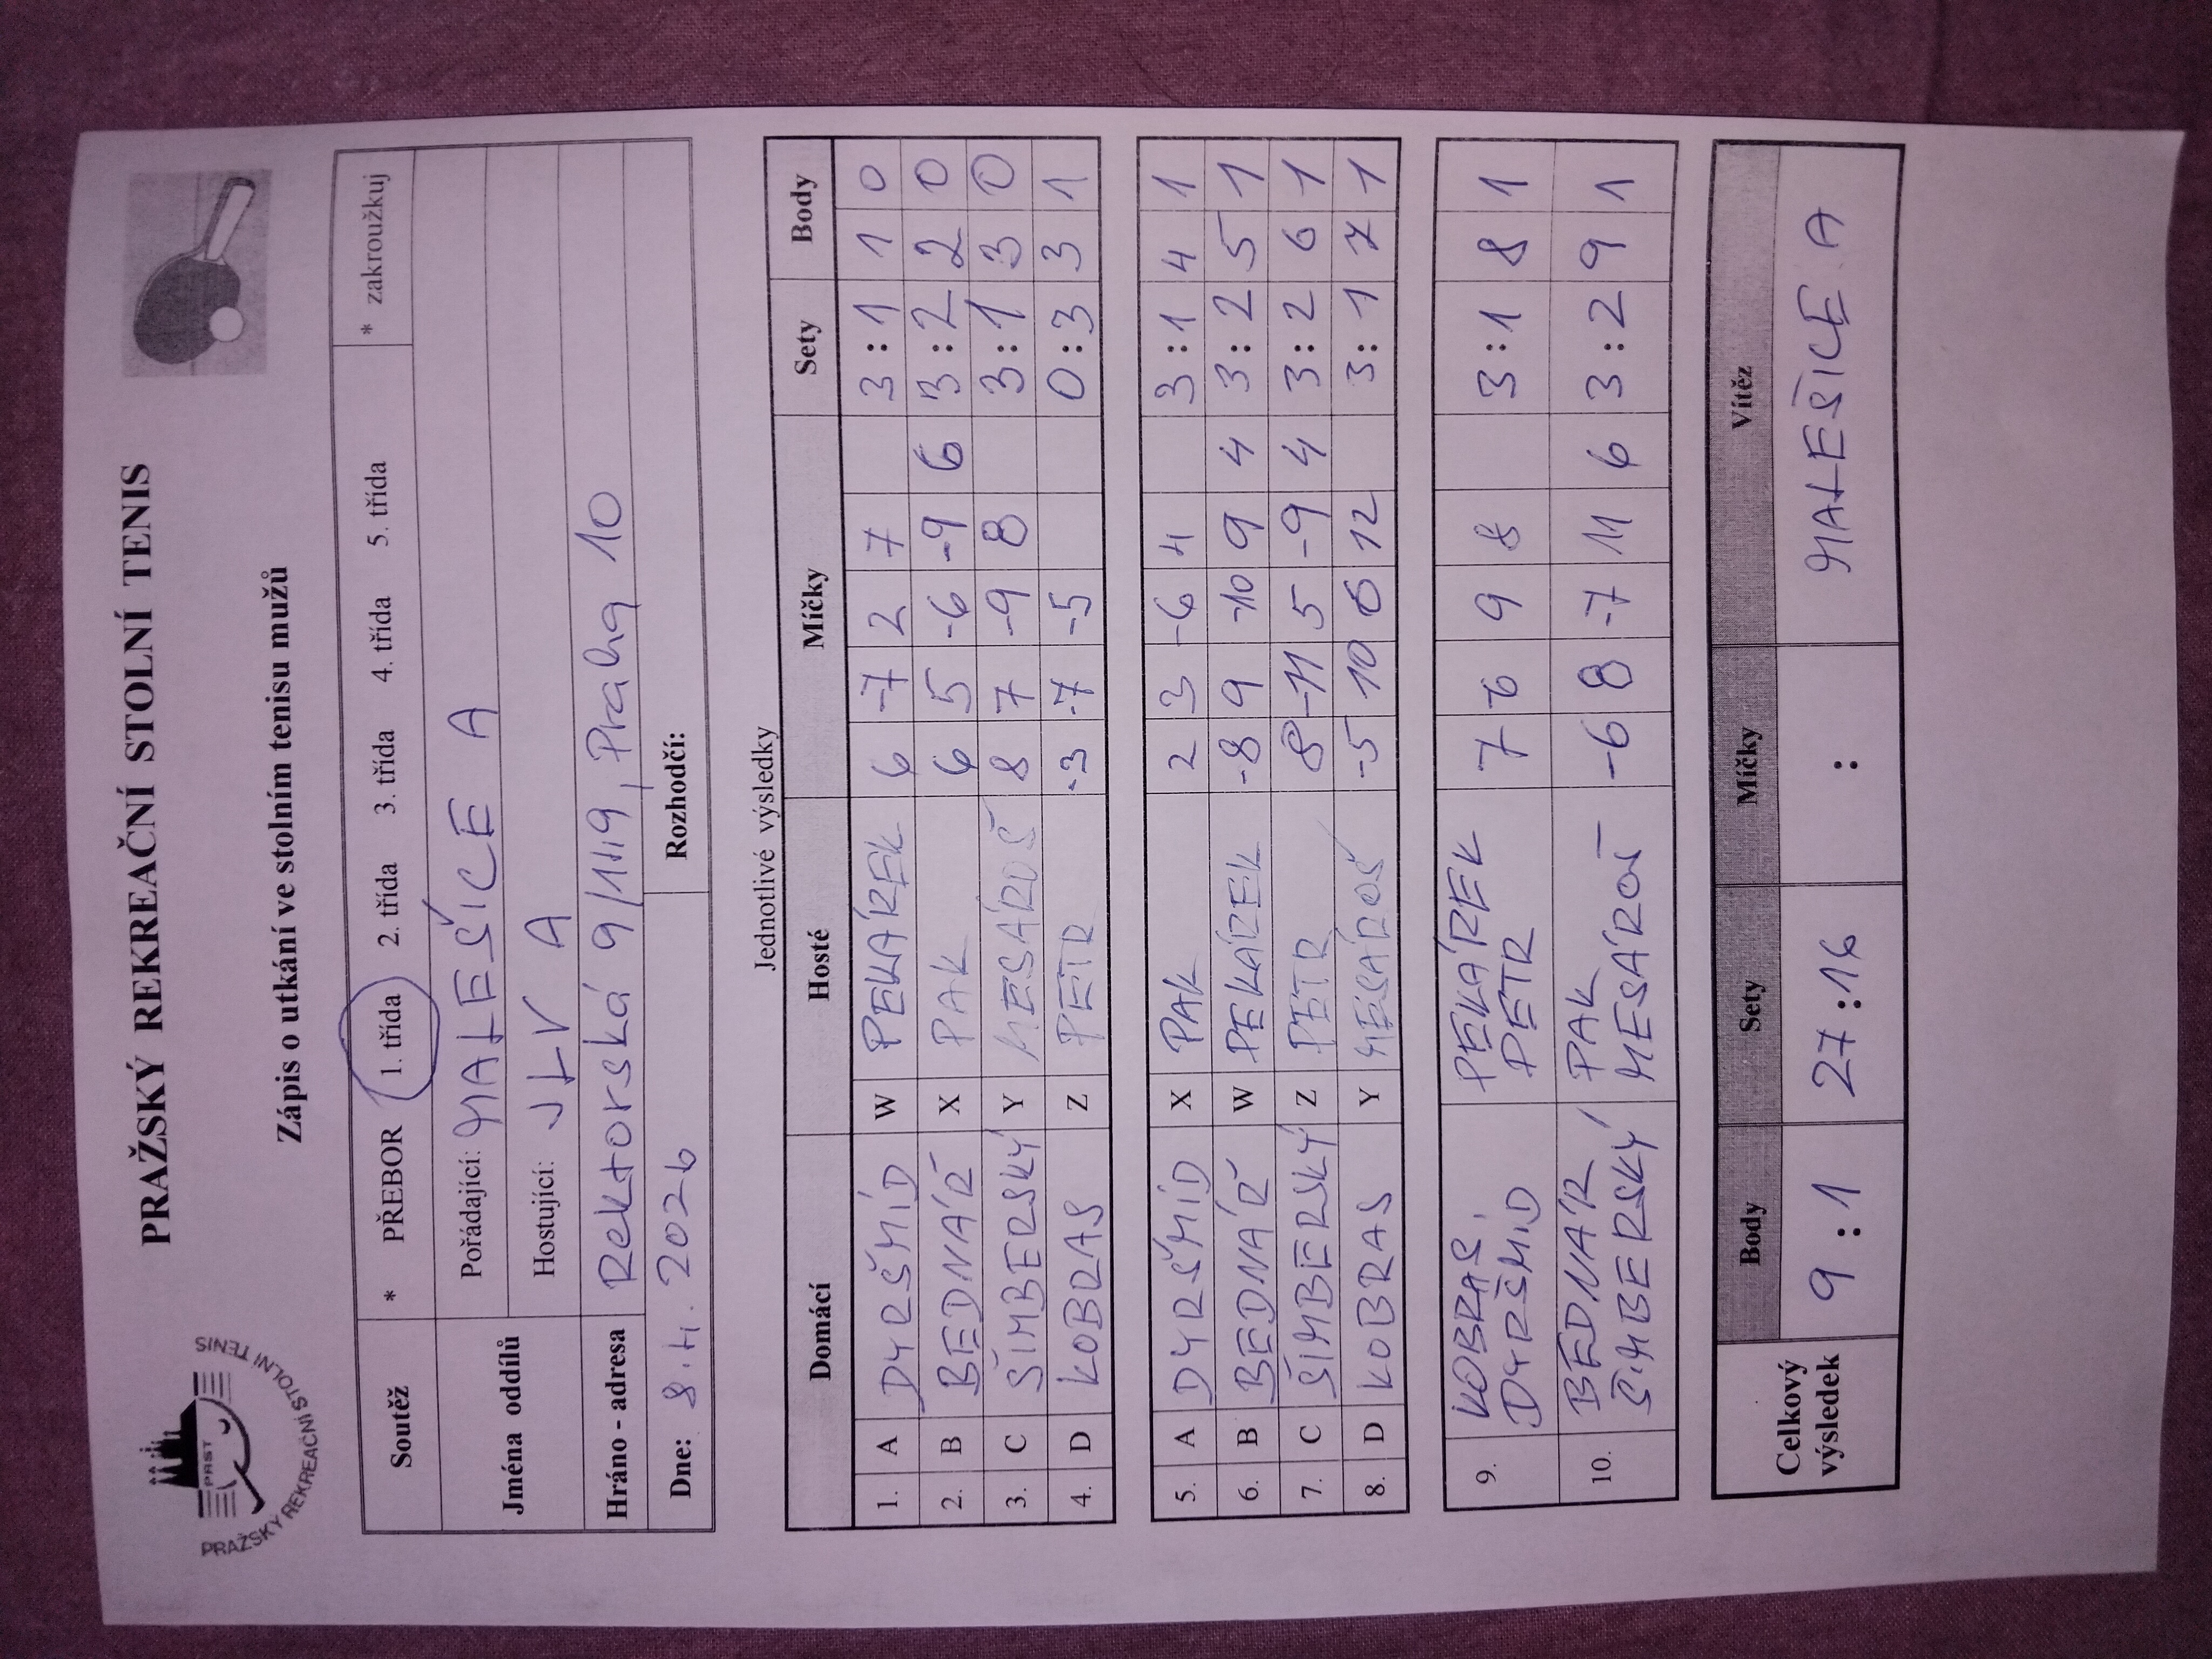 PRAŽSKÝ REKREAČNÍ STOLNÍ TENIS
PRST
PRAŽSKÝ REKREAČNÍ STOLNÍ TENIS
Zápis o utkání ve stolním tenisu mužů
Soutěž * PŘEBOR 1. třída 2. třída 3. třída 4. třída 5. třída * zakroužkuj
Jména oddílů Pořádající: MALEŠICE A
Hostující: JLV A
Hráno - adresa Rektorská 9/1119, Praha 10
Dne: 8.4. 2026 Rozhodčí:
Jednotlivé výsledky
Domácí Hosté Míčky Sety Body
1. A DYRŠMÍD W PEKÁREK 6 -7 2 7 3:1 1 0
2. B BEDNÁŘ X PAK 6 5 -6 -9 6 3:2 2 0
3. C ŠIMBERSKÝ Y MESÁROŠ 8 7 -9 8 3:1 3 0
4. D KOBRAS Z PETR -3 -7 -5 0:3 3 1
5. A DYRŠMÍD X PAK 2 3 -6 4 3:1 4 1
6. B BEDNÁŘ W PEKÁREK -8 9 -10 9 4 3:2 5 1
7. C ŠIMBERSKÝ Z PETR 8 -11 5 -9 4 3:2 6 1
8. D KOBRAS Y MESÁROŠ -5 10 6 12 3:1 7 1
9. KOBRAS PEKÁREK 7 -6 9 8 3:1 8 1
DYRŠMÍD PETR
10. BEDNÁR PAK -6 8 -7 11 6 3:2 9 1
ŠIMBERSKÝ MESÁROŠ
Celkový výsledek Body Sety Míčky Vítěz
9:1 27:16 : MALEŠICE A